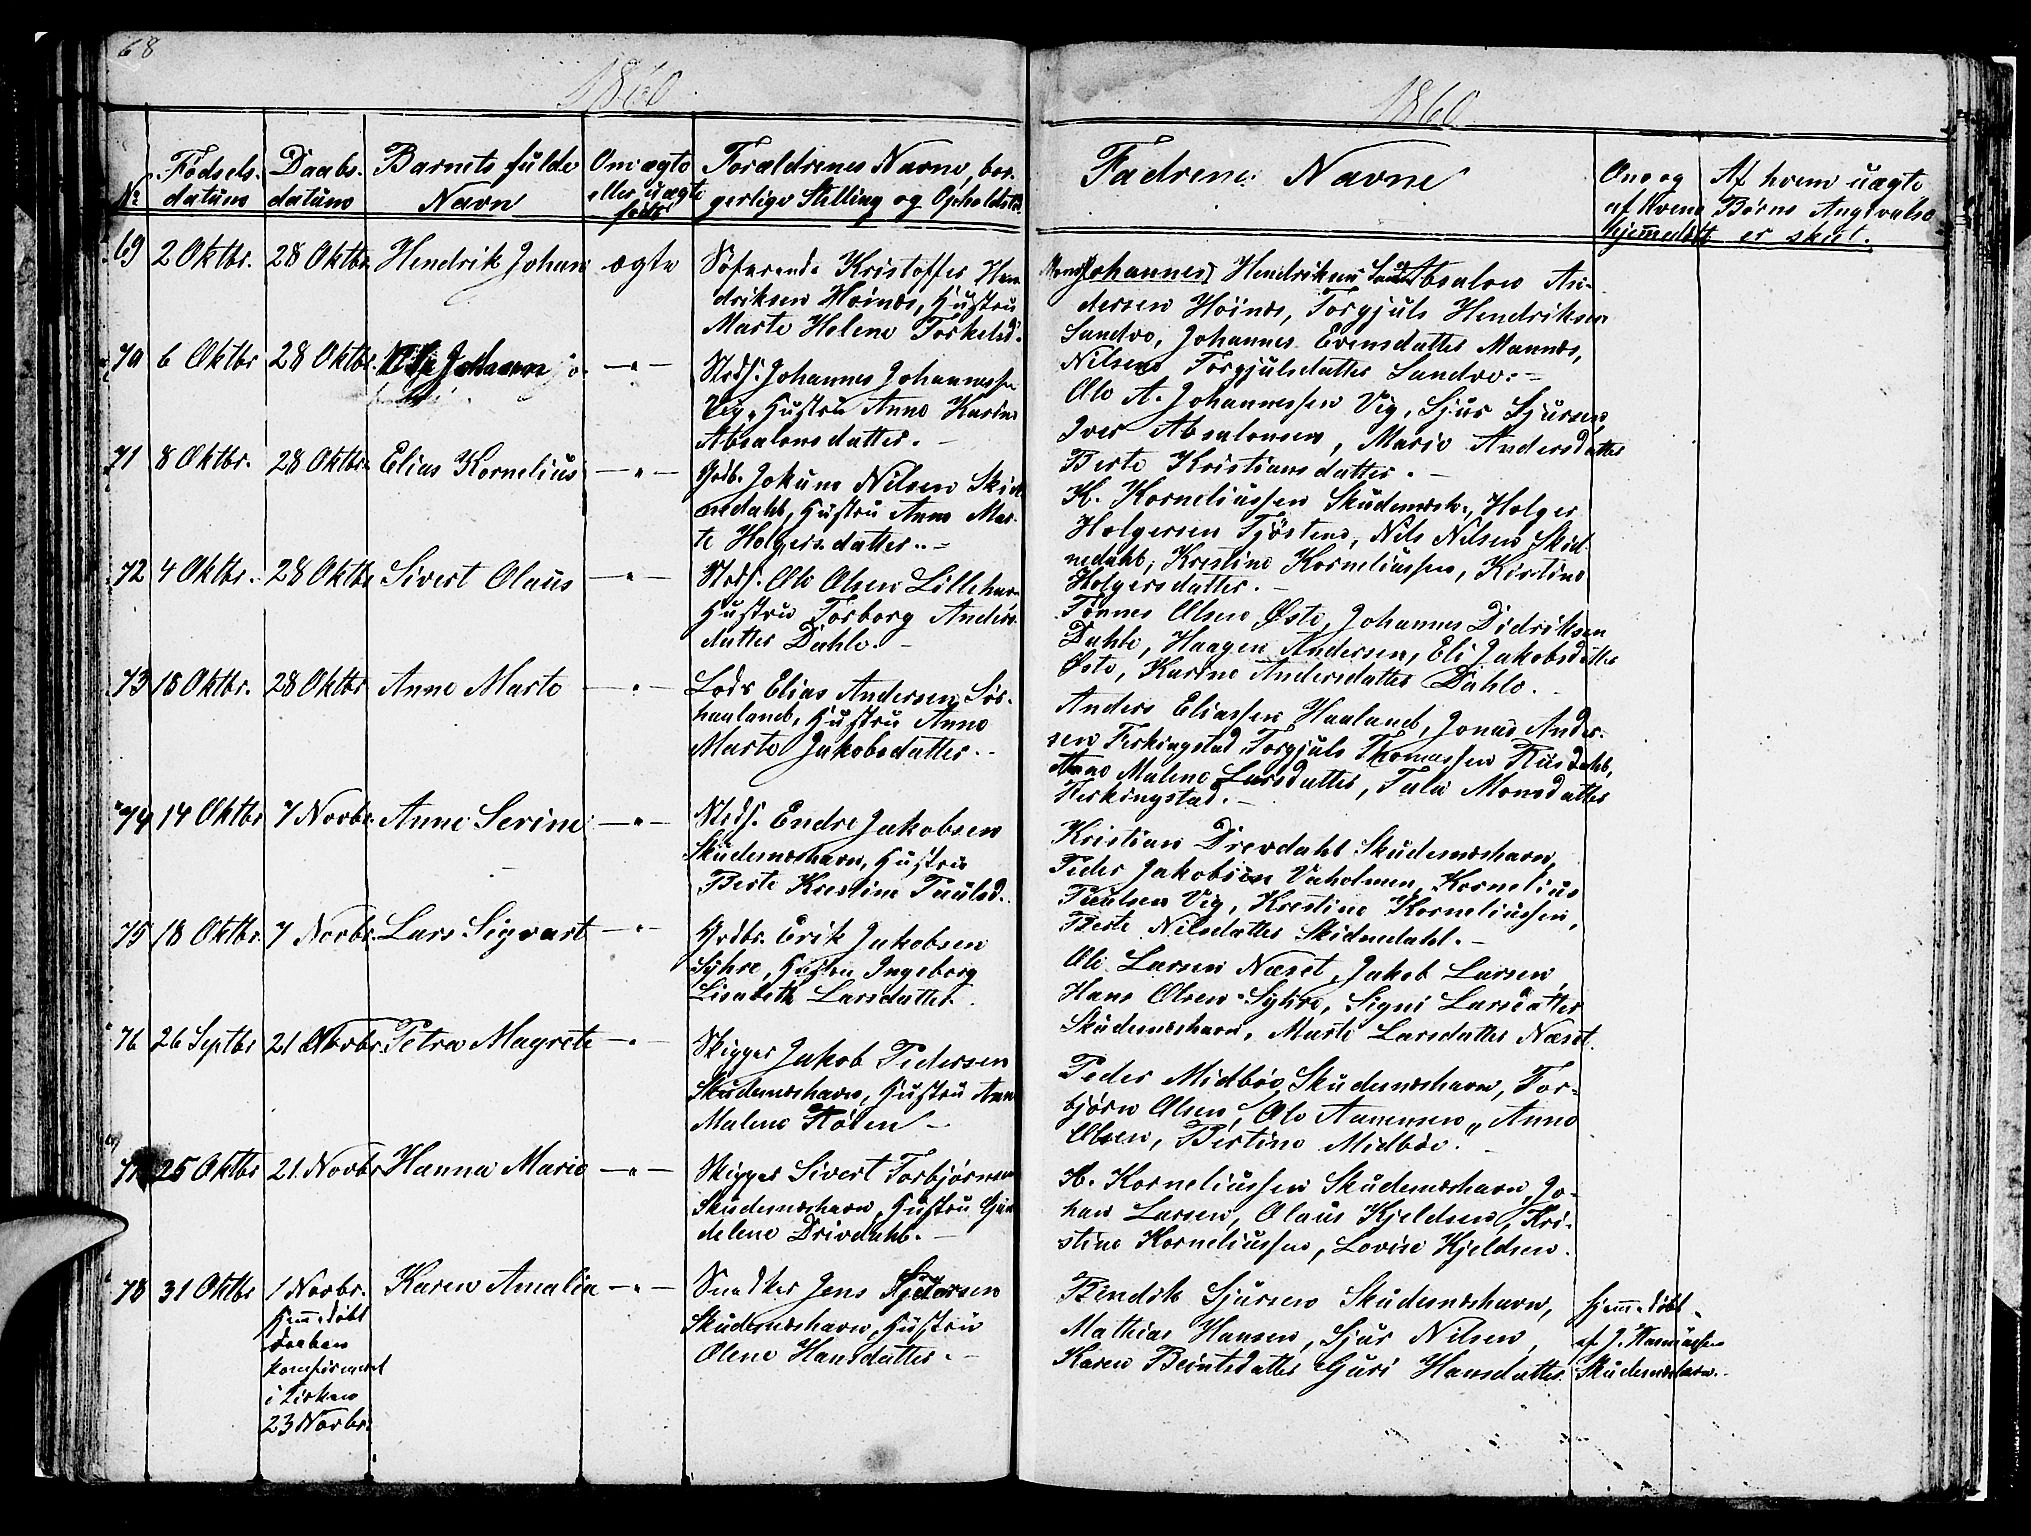 68
1860
1860
No Fødsels- datum Daabs- datum Barnets fulde Navn Om ægte eller uægte født Forældrenes Navne, bor- gerlige Stilling og Opholdsted
Fadrenes Navne Om og af Hvem hjemmedøbt Af hvem uægte Børns Angivelse er skeet.
69 2 Oktbr. 28 Oktbr. Hendrik Johan ægte Søfarende Kristoffer Hen-
driksen Høinæs, Hustru
Marte Helene Torkelsd.
Johannes Hendriksen Absalon An-
dersen Høinæs, Torgjuls Hendriksen
Sandve, Johannes Evensdatter Mannæs,
Nilsens Torgjulsdatter Sandve.-
70 6 Oktbr 28 Oktbr. Johanne -"- Strds. Johannes Johannessen
Vig, Hustru Anne Karine
Absalonsdatter. -
Ole A. Johannessen Vig, Sjur Sjursen,
Iver Absalonsen, Marie Andersdatter
Berte Kristiansdatter. -
71 8 Oktbr. 28 Oktbr. Elias Kornelius -"- Grdb. Jokum Nilsen Skid-
nedahl, Hustru Anne Mar-
te Holgersdatter. -
K. Korneliussen Skudenæsh., Holger
Holgersen Tjøsten, Nils Nilsen Skid-
nedahl, Krestine Korneliussen, Kirstine
Holgersdatter. -
72 4 Oktbr. 28 Oktbr Sivert Olaus -"- Strds. Ole Olsen Lillehav
Hustru Torborg Anders-
datter Dahle. -
Tønnes Olsen Øste, Johannes Didriksen
Dahle, Haagen Andersen, Eli Jakobsdatter
Øste, Karine Andersdatter Dahle. -
73 18 Oktbr. 28 Oktbr Anne Marte -"- Lods Elias Andersen Sør-
haaland, Hustru Anne
Marte Jakobsdatter. -
Anders Eliassen Haaland, Jonas Ander-
sen Ferkingstad Torgjuls Thomassen Risdahl,
Anne Malene Larsdatter, Tala Monsdatter
Ferkingstad. -
74 14 Oktbr 7 Novbr. Anne Serine -"- Strds. Endre Jakobsen
Skudenæshavn, Hustru
Berte Krestine Paulsd.
Kristian Drevdahl Skudenæshavn,
Peder Jakobsen Vaholmen, Kornelius
Paulsen Vig, Krestine Korneliussen,
Berte Nilsdatter Skidnedahl. -
75 18 Oktbr. 7 Novbr. Lars Sigvart -"- Grdbr. Erik Jakobsen
Syhre, Hustru Ingeborg
Lisabeth Larsdatter.
Ole Larsen Næset, Jakob Larsen,
Hans Olsen Syhre, Signi Larsdatter
Skudenæshavn, Marte Larsdatter Næset.
76 26 Septbr 21 Novbr. Petra Magrete -"- Skipper Jakob Pedersen
Skudenæshavn, Hustru Ann
Malene Støren -
Peder Midbøe Skudenæshavn, Tor-
bjørn Olsen, Ole Aamensen, Anne
Olsen, Bertine Midbøe. -
77 25 Oktbr 21. Novbr Hanna Marie -"- Skipper Sivert Torbjørnsen
Skudenæshavn, Hustru Gun
delene Drivdahl. -
H. Korneliussen Skudenæshavn, Jo-
han Larsen, Olaus Kjeldsen, Kri-
stine Korneliussen, Lovise Kjeldsen.
78 31 Oktbr 1 Novbr. Karen Amalia -"- Snedker Jens Pedersen
Hjemmedøbt
Daaben
konfirmeret
i Kirken
23 Novbr.
Skudenæshavn, Hustru
Olene Hansdatter. -
Bendik Sjursen Skudenæshavn,
Mathias Hansen, Sjur Nilsen,
Karen Berntsdatter Guri Hansdatter
Hjemmedøbt
af J. Rasmussen
Skudenæshavn.